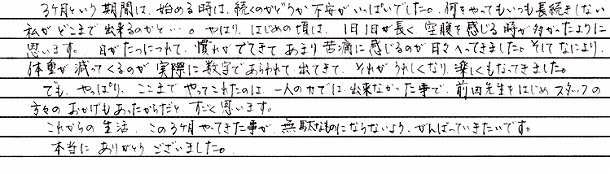 3ヶ月という期間は、始める時は、続くのかどうか不安がいっぱいでした。何をやってもいつも長続きしない
私がどこまで出来るのかと…。やはり、はじめの頃は、1日1日が長く空腹を感じる時が多かったように
思います。日がたつにつれて、慣れがでてきてあまり苦痛に感じるのが日々へってきました。そしてなにより、
体重が減ってくるのが実際に数字であらわれて出てきて、それがうれしくなり楽しくもなってきました。
でも、やっぱり、ここまでやってこれたのは、一人の力では、出来なかった事で、前田先生をはじめスタッフの
方々のおかげもあったからだと、すごく思います。
これからの生活、この3ヶ月やってきた事が、無駄なものにならないよう、がんばっていきたいです。
本当にありがとうございました。